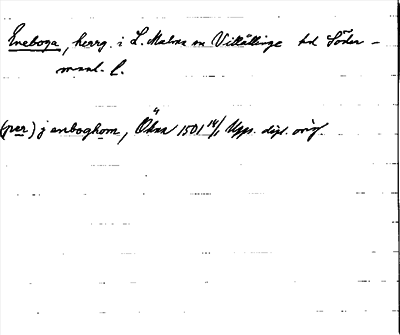 Eneboga, herrg. i L. Malms sn Villåttinge hd Söder-
manl. l.
(per) j enboghom, Ökna 1501 14/1 Upps. dipl. orig.